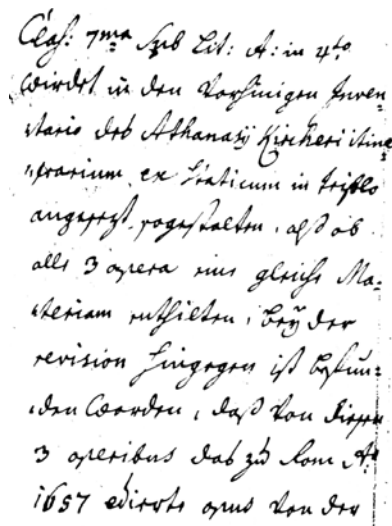 Class: 7ma Sub Lit: A: in 4to
wirdt in den Vorhinigen Inven-
tario des Athanasij Kircheri itine-
rarium exstaticum in triplo
angesezt, sogestalten, alß ob
alle 3 opera eine gleiche Ma-
teriam enthilten, bey der
revision hingegen ist befun-
den worden, daß von diesen
3 operibus das zu Rom Ao
1657 edierte opus von der